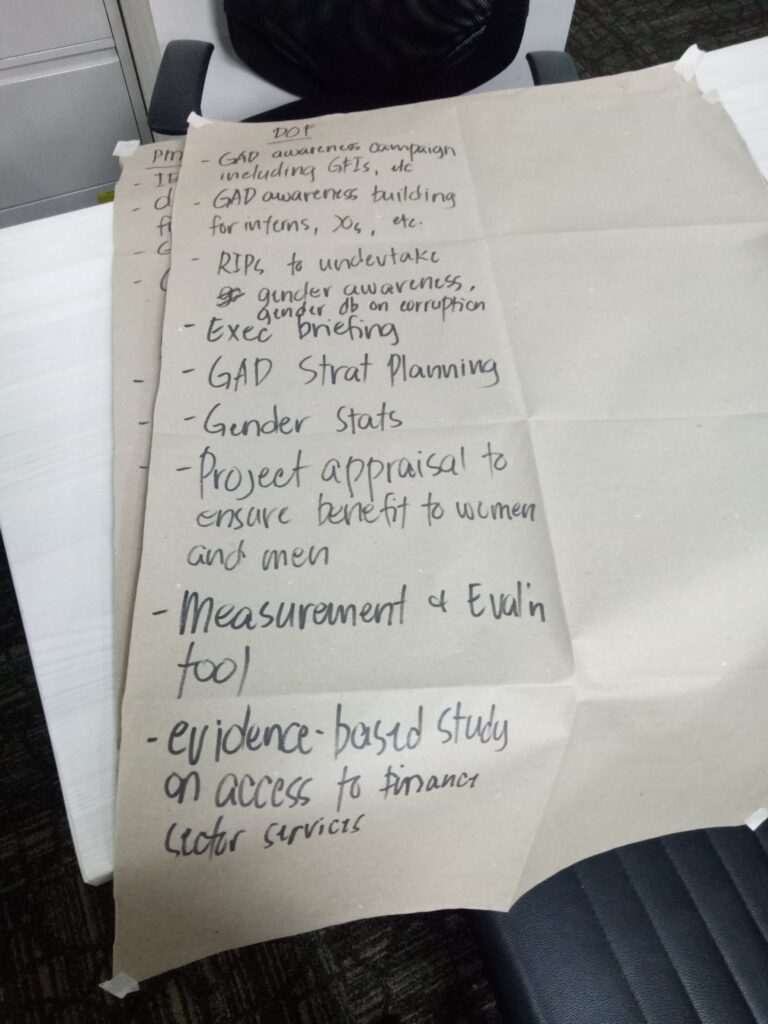 DOF
- GAD awareness campaign
including GFIs, etc
- GAD awareness building
for interns, XOs, etc.
- RIPs to undertake
gender awareness,
gender db on corruption
- Exec briefing
- GAD Strat Planning
- Gender Stats
- Project appraisal to
ensure benefit to women
and men
- Measurement & Eval'n
tool
- evidence-based study
on access to finance
sector services